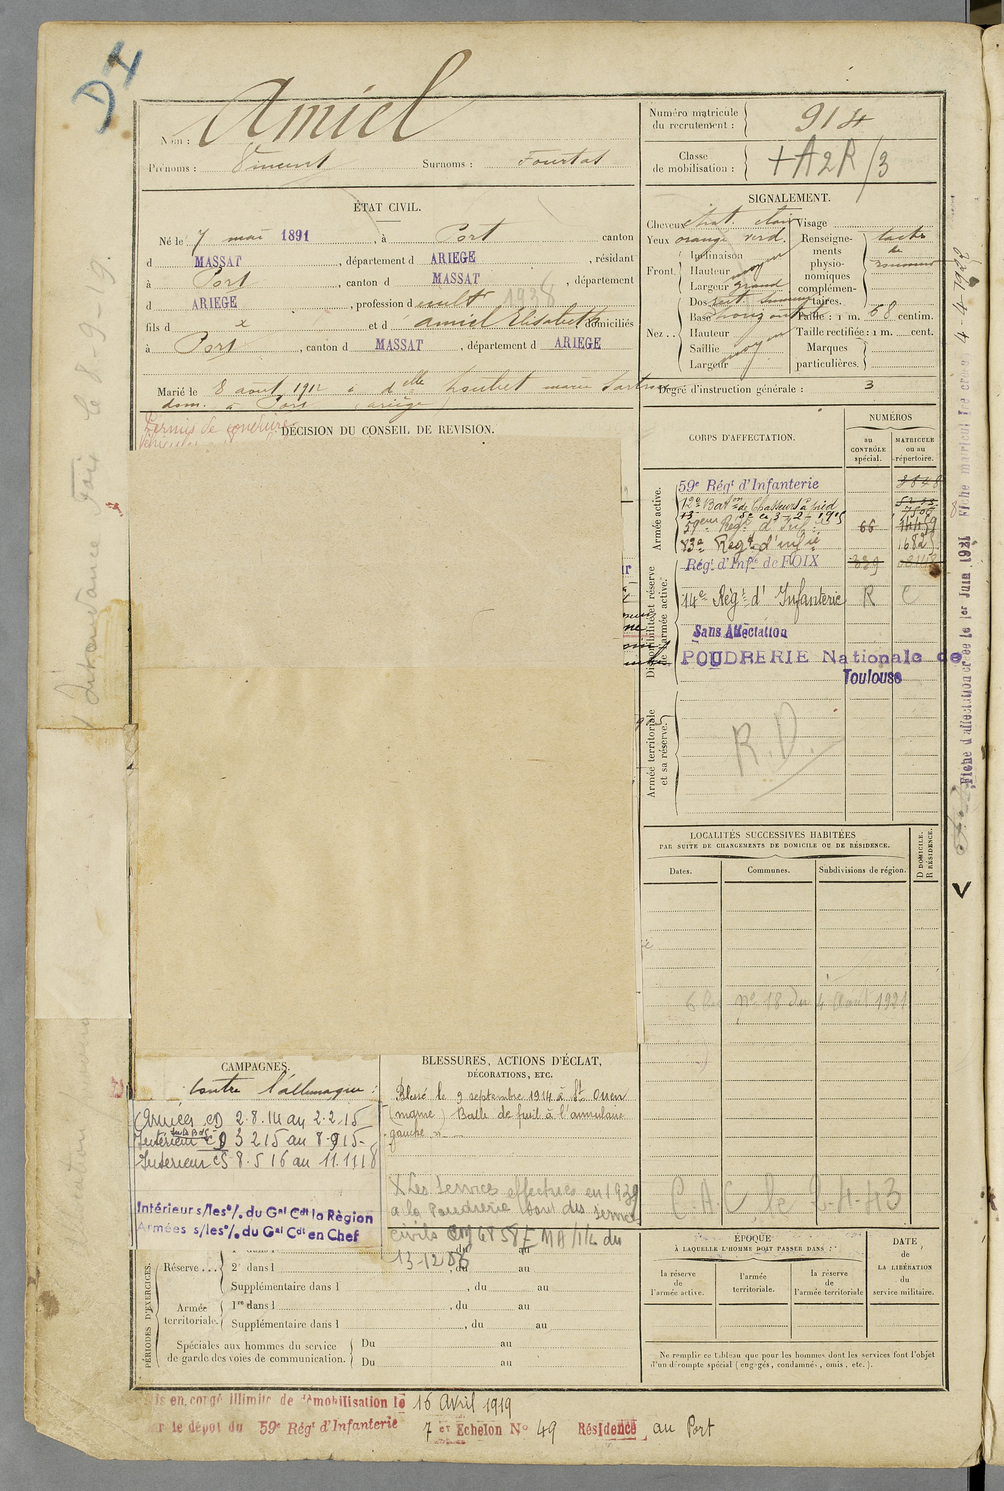 D4
Nom : Amiel
Prénoms : Vincent Surnoms : Fourtat
Numéro matricule du recrutement : 914
Classe de mobilisation : + A2R/3
ÉTAT CIVIL.
Né le 7 mai 1891, à Port canton
d MASSAT, département d ARIEGE, résidant
à Port, canton d MASSAT, département
d ARIEGE, profession d cultr 1938
fils d x et d Amiel Elisabeth domiciliés
à Port, canton d MASSAT, département d ARIEGE
Marié le 8 aout 1912 à delle Loubet marie
dom. à Port ariège
SIGNALEMENT.
Cheveux chat. clair Visage
Yeux orangé verd. Renseigne-
Front. Inclinaison ments
Hauteur moyen physio-
Largeur grand nomiques
complémen-
taires.
tache
de
rousseur
Nez Dos rect.
Base horizontal Taille : 1 m. 68 centim.
Hauteur Taille rectifiée : 1 m. cent.
Saillie moyen Marques
Largeur particulières.
Degré d'instruction générale : 3
Permis de conduire
DÉCISION DU CONSEIL DE REVISION.
CORPS D'AFFECTATION.
NUMÉROS
au CONTRÔLE spécial.
MATRICULE ou au répertoire.
Armée active.
59e Régt d'Infanterie
12e Baton de Chasseurs à pied
59eme Regt d'Inf. 66
83e Regt d'infie
Disponibilité et réserve de l'armée active.
Régt d'Infie de FOIX
14e Régt d'Infanterie R C
Sans Affectation
POUDRERIE Nationale de
Toulouse
Armée territoriale et sa réserve.
R.D.
LOCALITÉS SUCCESSIVES HABITÉES
PAR SUITE DE CHANGEMENTS DE DOMICILE OU DE RÉSIDENCE.
Dates. Communes. Subdivisions de région.
D DOMICILE. R RÉSIDENCE.
no 18 du 4 Aout 1921
C.A.C le 2-4-43
CAMPAGNES.
Contre l'allemagne :
Armées CD 2.8.14 au 2.2.15
Intérieur CD 3 2 15 au 8-9 15-
Interieur CS 8.5 16 au 11.11 18
Intérieur s/les o/. du Gal Cdt la Région
Armées s/les o/. du Gal Cdt en Chef
BLESSURES, ACTIONS D'ÉCLAT,
DÉCORATIONS, ETC.
Blessé le 9 septembre 1914 à St Ouen
(marne) Balle de fusil à l'annulaire
gauche
X Les services effectués en 1939
a la Poudrerie sont des services
civils CM 6858 E MA/1/L du
13-12 56
PÉRIODES D'EXERCICES.
Réserve
2e dans l , du au
Supplémentaire dans l , du au
Armée territoriale.
1re dans l , du au
Supplémentaire dans l , du au
Spéciales aux hommes du service
de garde des voies de communication.
Du au
Du au
ÉPOQUE
À LAQUELLE L'HOMME DOIT PASSER DANS :
la réserve de l'armée active.
l'armée territoriale.
la réserve de l'armée territoriale
DATE de LA LIBÉRATION du service militaire.
Ne remplir ce tableau que pour les hommes dont les services font l'objet
d'un décompte spécial (engagés, condamnés, omis, etc.).
en congé illimité de démobilisation le 16 Avril 1919
le dépôt du 59e Régt d'Infanterie 7 et Echelon No 49 Résidence au Port
Foix le 8-9-19.
Fiche d'affectation créée le 1er Juin 1921 Fiche matricule créée 4-4-1922
V